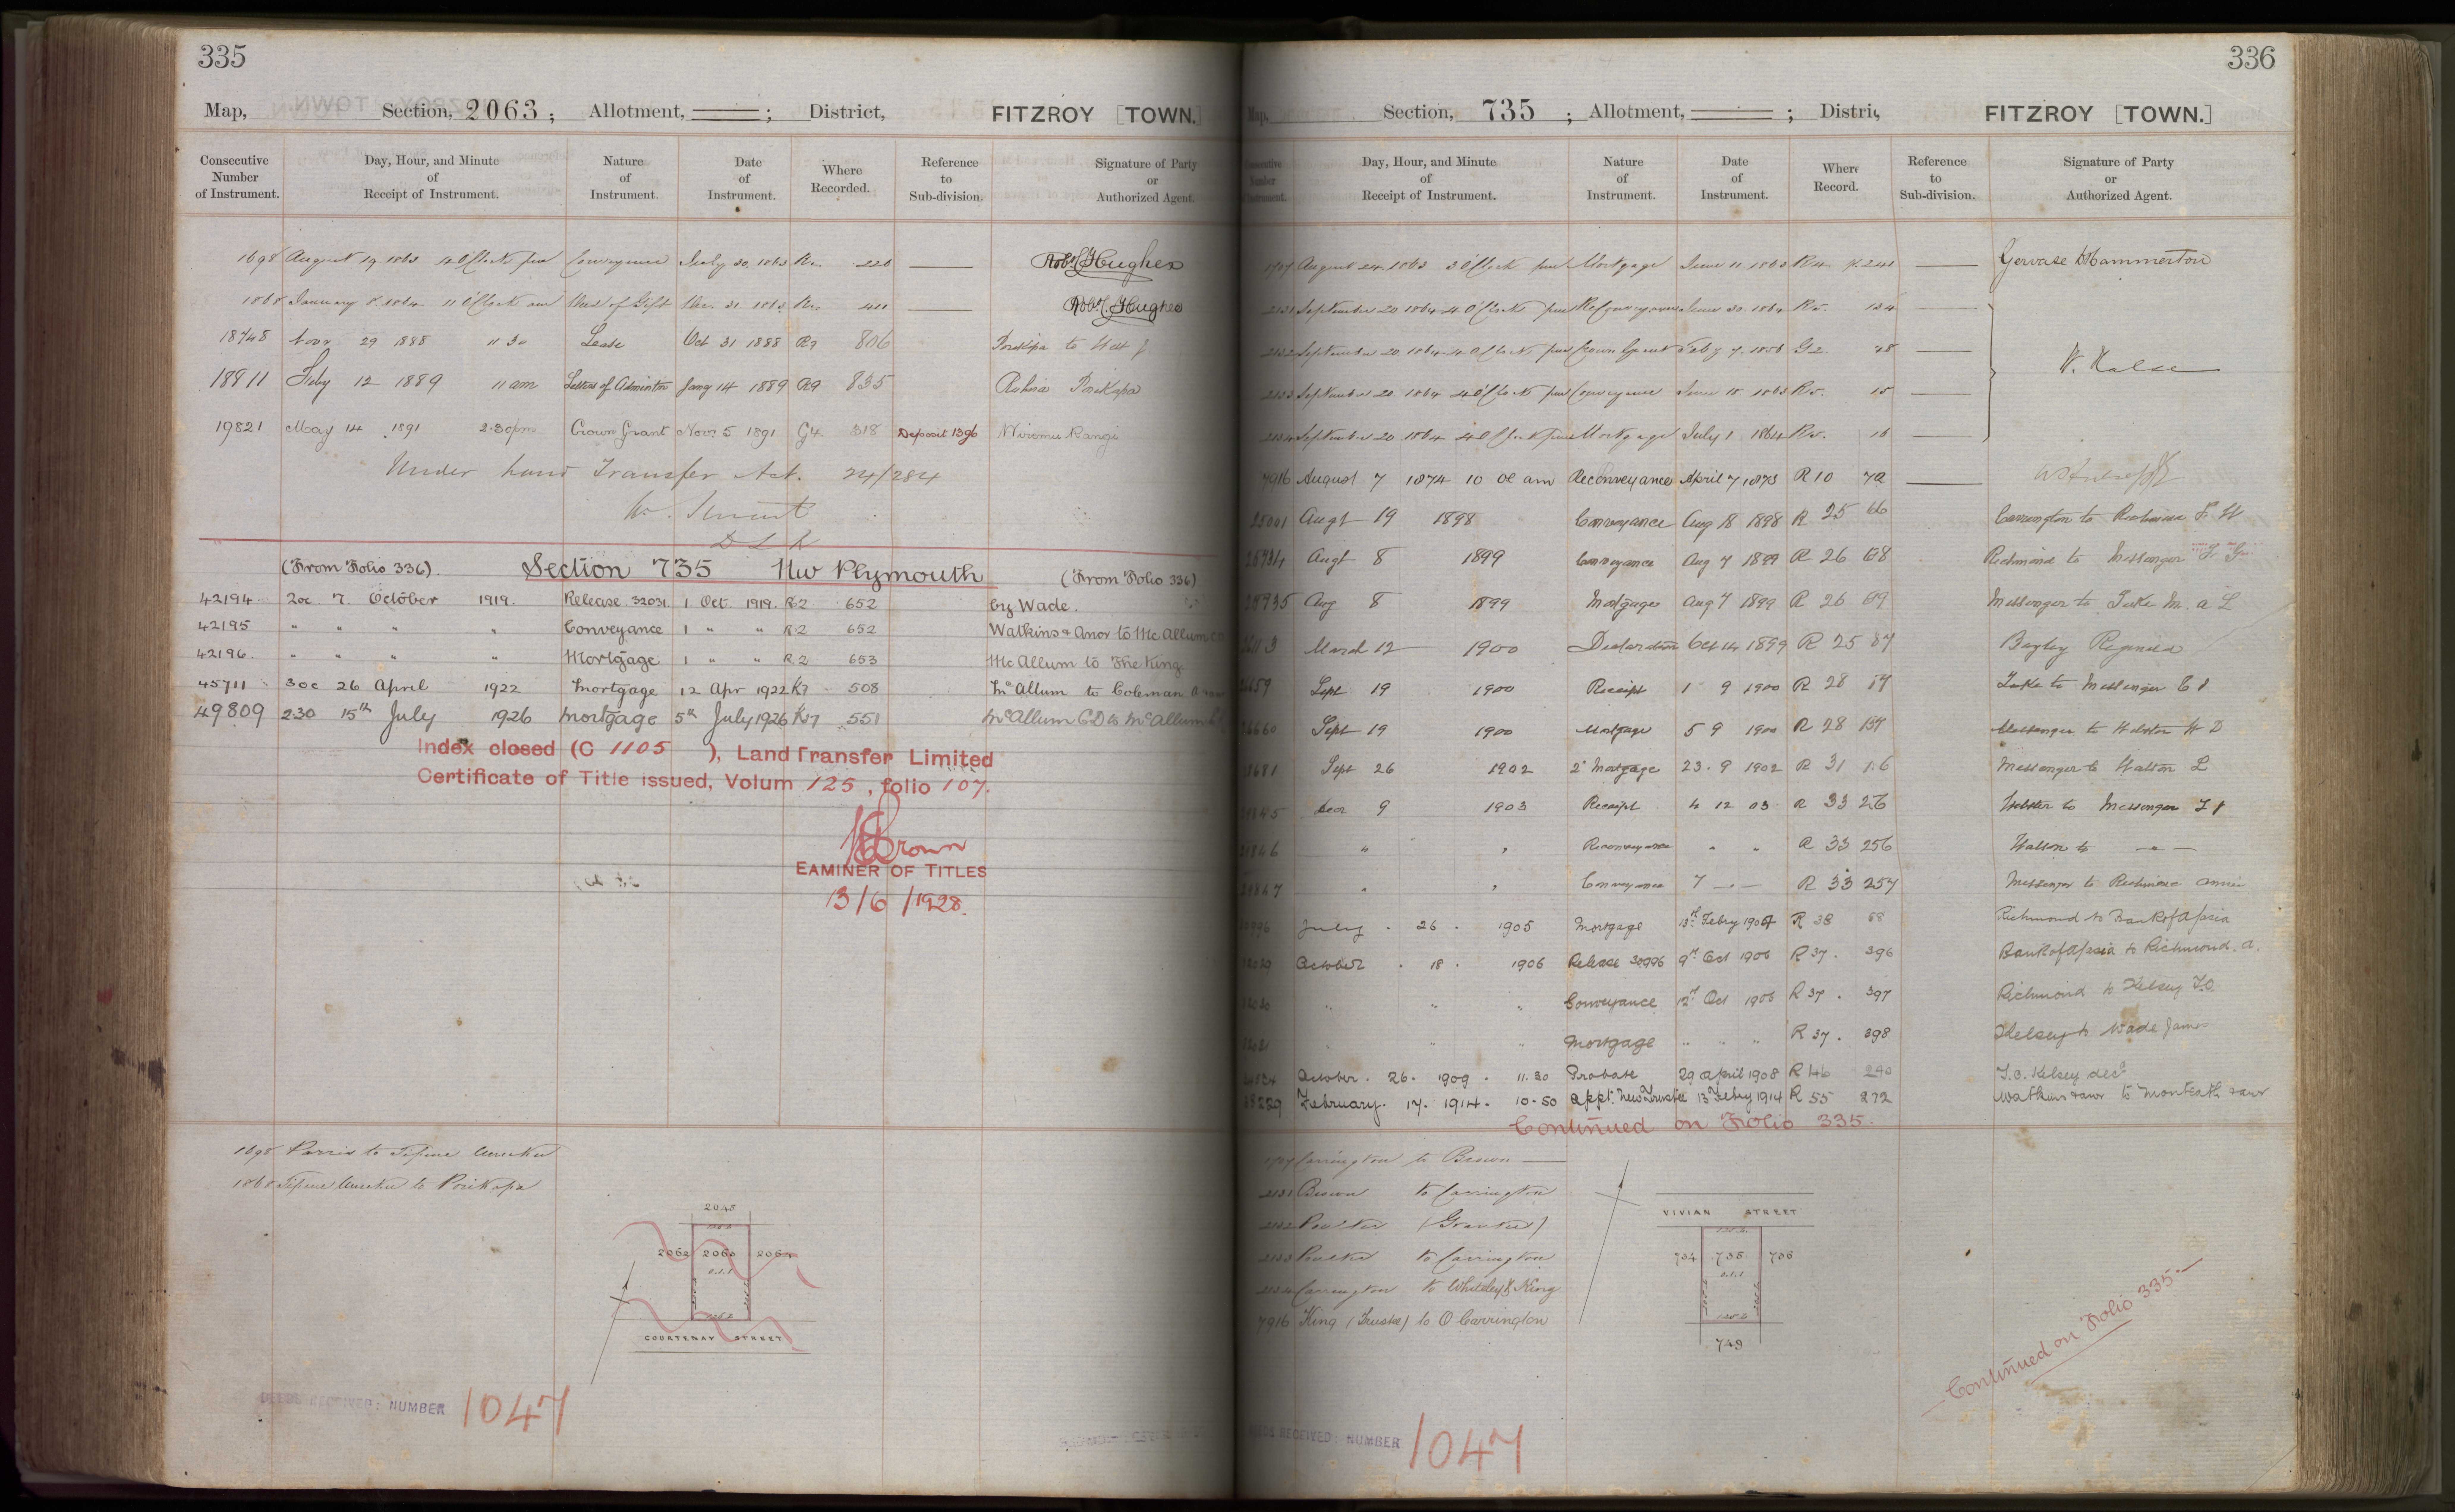 335
Map, Section, 2063 ; Allotment, ; District, FITZROY [TOWN.]
Consecutive Number of Instrument. Day, Hour, and Minute of Receipt of Instrument. Nature of Instrument. Date of Instrument. Where Recorded. Reference to Sub-division. Signature of Party or Authorized Agent.
1698 August 19 1863 4 O'Clock pm Conveyance July 30 1863 R 220 Robt. Hughes
1868 January 8 1864 11 O'Clock am Deed of Gift Dec. 31 1863 R 411 Robt. Hughes
18748 Novr 29 1888 11 30 Lease Oct 31 1888 R9 806 Porikapa to
18911 Feby 12 1889 11 am Letters of Adminton Jany 14 1889 R9 835 Porikapa
19821 May 14 1891 2.30pm Crown Grant Novr 5 1891 G4 318 Deposit 1396 Wiremu Rangi
Under Land Transfer Act. 24/284
D L R
(From Folio 336). Section 735 New Plymouth (From Folio 336)
42194 2oc 7 October 1919. Release 32031 1 Oct. 1919. R2 652 by Wade.
42195 " " " " Conveyance 1 " " R2 652 Watkins & Anor to McAllum CD
42196. " " " " Mortgage 1 " " R.2 653 McAllum to The King.
45711 3oc 26 April 1922 Mortgage 12 Apr 1922 R7 508 McAllum to Coleman
49809 2.30 15th July 1926 Mortgage 5th July 1926 R17 551 McAllum C D to McAllum
Index closed (C 1105 ), Land Transfer Limited
Certificate of Title issued, Volum 125, folio 107.
Brown
EAMINER OF TITLES
13/6/1928.
1698 Parris to
1868 to Porikapa
2043
2062 2063 2064
0.1.1
COURTENAY STREET
DEEDS RECEIVED: NUMBER 1047
336
Map, Section, 735 ; Allotment, ; Distri, FITZROY [TOWN.]
Consecutive Number of Instrument. Day, Hour, and Minute of Receipt of Instrument. Nature of Instrument. Date of Instrument. Where Record. Reference to Sub-division. Signature of Party or Authorized Agent.
1707 August 24 1863 3 O'Clock pm Mortgage June 11 1863 R4 p.241 Gervase D Hammerton
2131 September 20 1864 4 O'Clock pm ReConveyance June 30 1864 R5. 134
2132 September 20 1864 4 O'Clock pm Crown Grant Feby 7 1856 G2. 48 W. Halse
2133 September 20 1864 4 O'Clock pm Conveyance June 18 1863 R5. 15
2134 September 20 1864 4 O'Clock pm Mortgage July 1 1864 R5. 16
7916 August 7 1874 10 Oc am Reconveyance April 7 1873 R10 72
25001 Augt 19 1898 Conveyance Aug 18 1898 R 25 Carrington to Richmond F. H
Augt 8 1899 Conveyance Aug 7 1899 R 26 68 Richmond to Messenger
Aug 8 1899 Mortgage Aug 7 1899 R 26 69 Messenger to
March 12 1900 Declaration Oct 14 1899 R 25 87 Bayley Reginald
Sept 19 1900 Receipt 1 9 1900 R 28 to Messenger
Sept 19 1900 Mortgage 5 9 1900 R 28 Messenger to
Sept 26 1902 2d Mortgage 23. 9 1902 R 31 Messenger to Halton L
Decr 9 1903 Receipt 4 12 03 R 33 to Messenger
" " Reconveyance " " R 33 256 Halton to
" " Conveyance 7 R 33 257 Messenger to Richmond Annie
30996 July . 26 . 1905 Mortgage 13th Febry 1904 R 38 68 Richmond to Bank of A/asia
32029 October . 18 . 1906 Release 30996 9th Oct 1906 R 37. 396 Bank of A/asia to Richmond. A.
32030 " " " Conveyance 12th Oct 1906 R 37. 397 Richmond to Kelsey T.O.
32031 " " " Mortgage " " " R 37. 398 Kelsey to Wade James
October. 26. 1909. 11.30 Probate 29 April 1908 R 46 240 T.O. Kelsey decd
38229 February. 17. 1914. 10.50 Appt. New Trustee 13 Febry 1914 R 55 272 Watkins & anr to Monteath & anr
Continued on Folio 335.
1707 Carrington to Brown
2131 Brown to Carrington
2132 Poulter (Grantee)
2133 Poulter to Carrington
2134 Carrington to Whiteley & King
7916 King (Trustee) to O Carrington
VIVIAN STREET
734 735 736
0.1.1
749
Continued on Folio 335.
DEEDS RECEIVED: NUMBER 1047